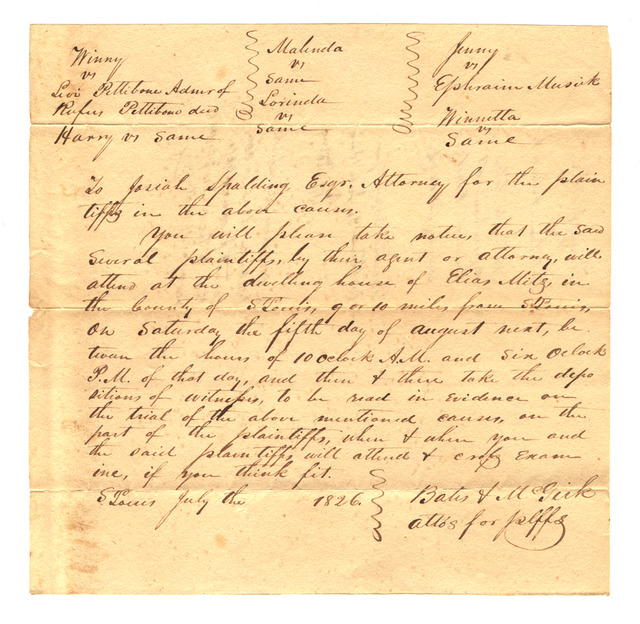 Winny
vs
Levi Pettibone Admr of
Rufus Pettibone decd
Harry vs Same
Malinda
vs
Same
Lorinda
vs
Same
Jenny
vs
Ephraim Musick
Winnetta
vs
Same
To Josiah Spalding Esqr. Attorney for the plain
tiffs in the above causes.
You will please take notice, that the said
several plaintiffs, by their agent or attorney, will
attend at the dwelling house of Elias Mitz, in
the County of St Louis, 9 or 10 miles from St Louis,
On Saturday the fifth day of august next, be
tween the hours of 10 Oclock A.M. and Six Oclock
P.M. of that day, and then & there take the depo
sitions of witnesses, to be read in evidence on
the trial of the above mentioned causes, on the
part of the plaintiffs, when & where you and
the said plaintiffs will attend & cross exam
ine, if you think fit.
St Louis July the 1826.
Bates & McGirk
attos for plffs